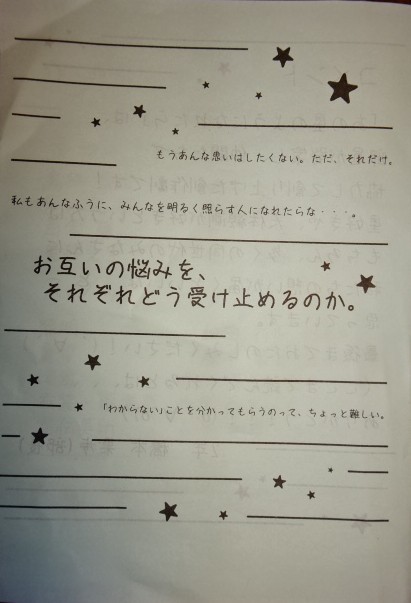 もうあんな思いはしたくない。ただ、それだけ。
私もあんなふうに、みんなを明るく照らす人になれたらな・・・。
お互いの悩みを、
それぞれどう受け止めるのか。
「わからない」ことを分かってもらうのって、ちょっと難しい。